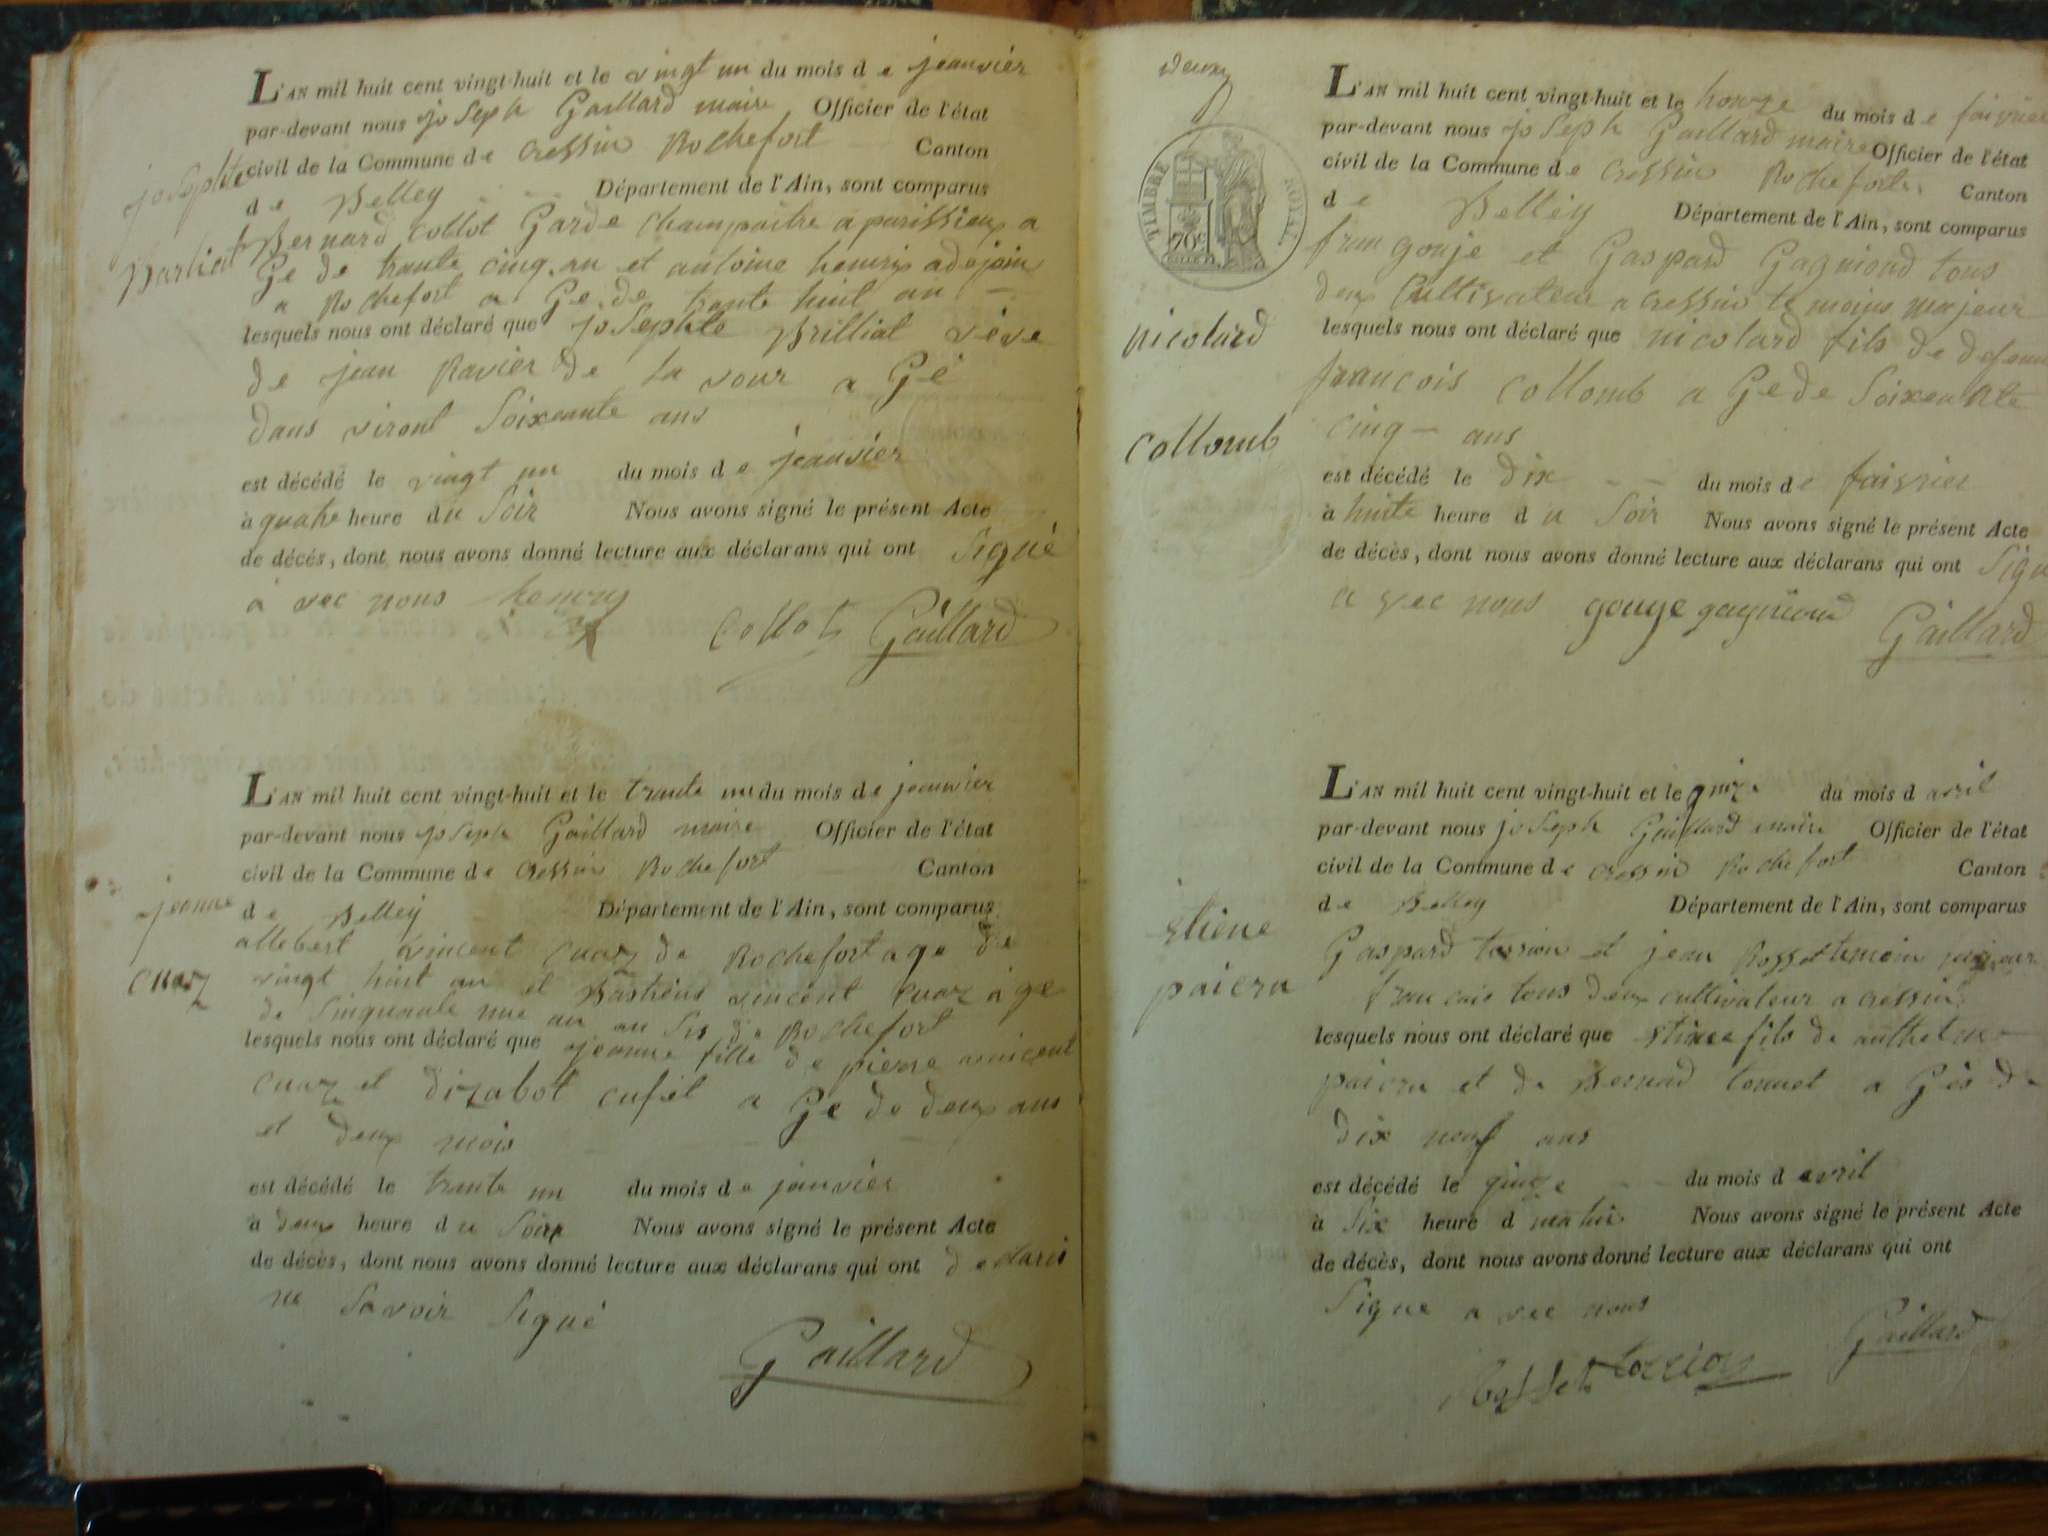 L'AN mil huit cent vingt-huit et le vingt un du mois de jeanvier
par-devant nous joseph Gaillard maire Officier de l'état
civil de la Commune de cressin Rochefort Canton
de Belley Département de l'Ain, sont comparus
josephte
Bernard collot Garde champaitre a parissieux a
Ge de trante cinq an et antoine henrix adejoin
a Rochefort a Ge de trante huit an
lesquels nous ont déclaré que josephte Brilliat veve
de jean Ravier de la vour a Gé
dans viront soixeante ans
est décédé le vingt un du mois de jeanvier
à quatre heure du soir Nous avons signé le présent Acte
de décés, dont nous avons donné lecture aux déclarans qui ont signé
a vec nous henrix
collot Gaillard
L'AN mil huit cent vingt-huit et le trante un du mois de jeanvier
par-devant nous joseph Gaillard maire Officier de l'état
civil de la Commune de cressin Rochefort Canton
jeanne
de Belley Département de l'Ain, sont comparus
allebert vincent cuaz de Rochefort age de
cuaz
vingt huit an et Bastiens vincent cuaz age
de sinquante une an de Rochefort
lesquels nous ont déclaré que jeanne fille de pierre vincent
cuaz et dizabot cusit a Ge de deux ans
et deux mois
est décédé le trante un du mois de janviér
à deux heure du soir Nous avons signé le présent Acte
de décès, dont nous avons donné lecture aux déclarans qui ont declaré
ne savoir signé
Gaillard
deux
TIMBRE ROYAL
70c
L'AN mil huit cent vingt-huit et le honze du mois de faivrier
par-devant nous joseph Gaillard maire Officier de l'état
civil de la Commune de cressin Rochefort Canton
de Belley Département de l'Ain, sont comparus
fran gouje et Gaspard Gagniond tous
deux Cultivateur a cressin temoins majeur
nicolard
lesquels nous ont déclaré que nicolard fils de defunt
francois collomb a Ge de soixeante
collomb
cinq ans
est décédé le dix du mois de faivrier
à huite heure du soir Nous avons signé le présent Acte
de décès, dont nous avons donné lecture aux déclarans qui ont signé
a vec nous gouye gagniond Gaillard
L'AN mil huit cent vingt-huit et le quize du mois d avril
par-devant nous joseph Gaillard maire Officier de l'état
civil de la Commune de cressin Rochefort Canton
de Belley Département de l'Ain, sont comparus
etiene
Gaspard tossion et jean Rosset temoin majeur
paiern
francais tous deux cultivateur a cressin
lesquels nous ont déclaré que etiene fils de anthelme
paiern et de Bernad tonnet a Gés de
dix neuf ans
est décédé le quize du mois d avril
à six heure d matin Nous avons signé le présent Acte
de décès, dont nous avons donné lecture aux déclarans qui ont
signe a vec nous
Rosset tossion Gaillard